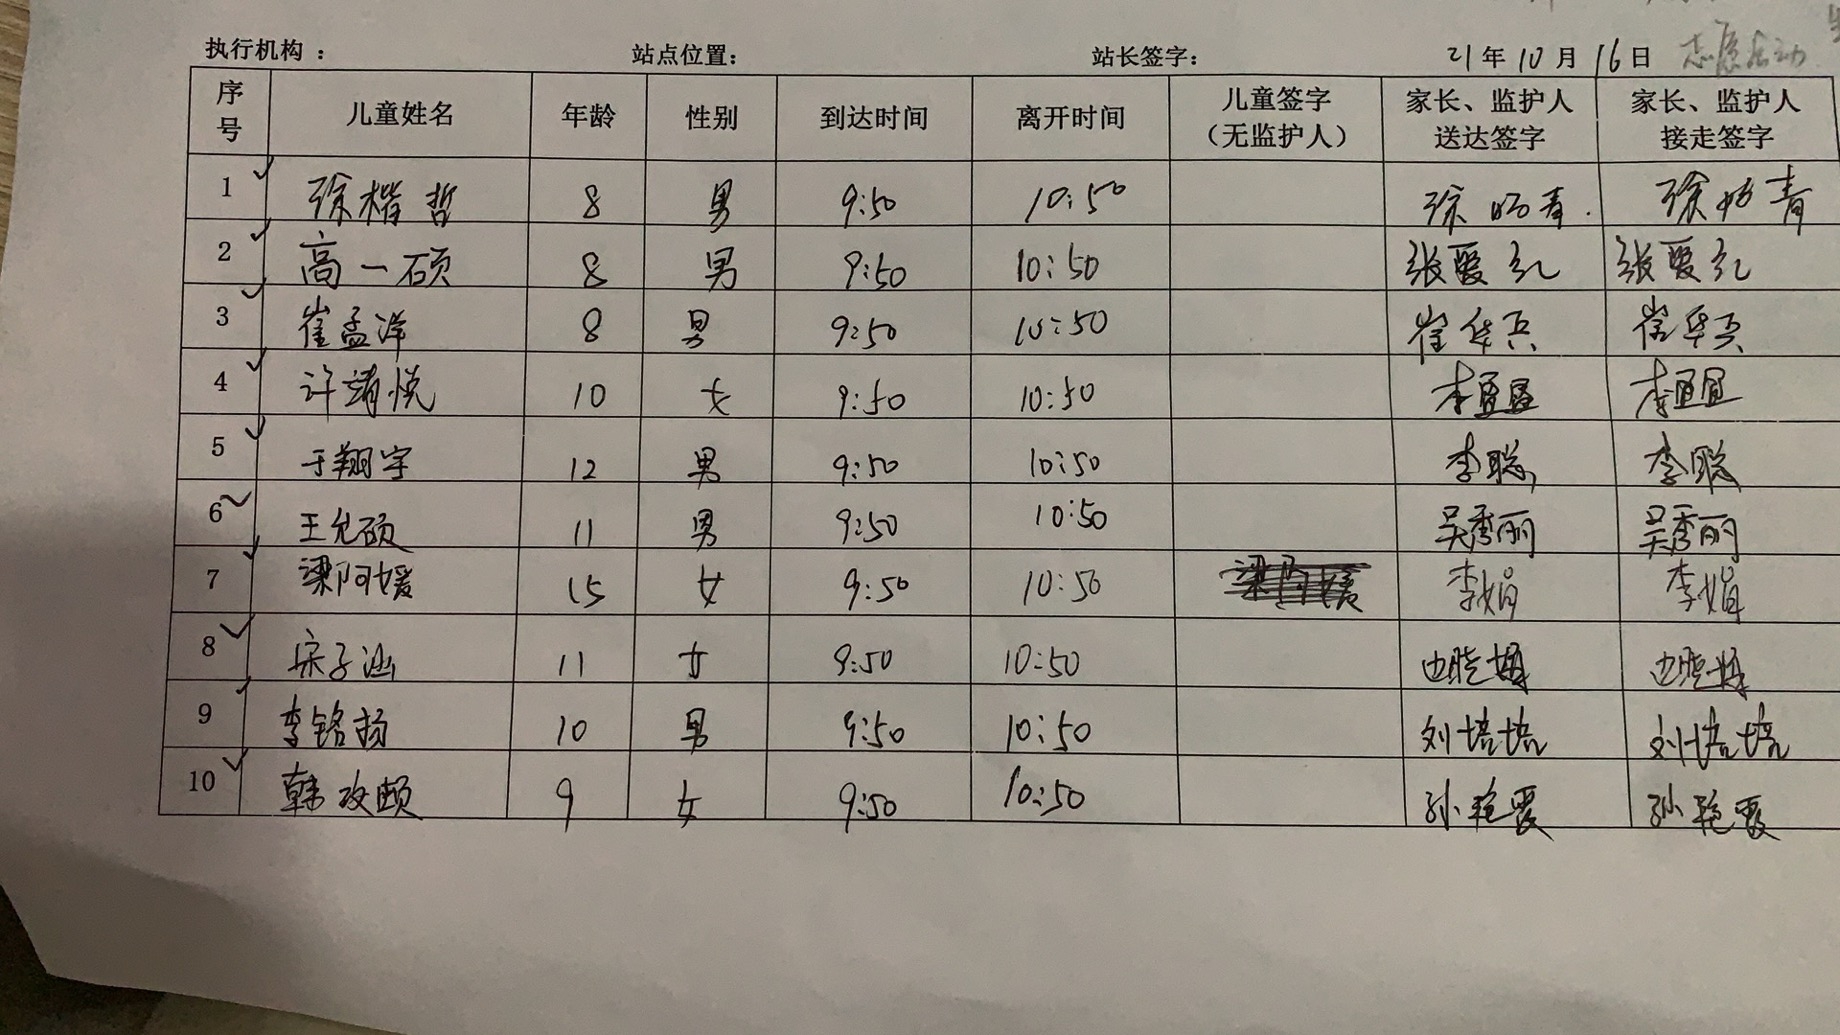 志愿活动
执行机构： 站点位置： 站长签字： 21年10月16日
序号 儿童姓名 年龄 性别 到达时间 离开时间 儿童签字（无监护人） 家长、监护人送达签字 家长、监护人接走签字
1 徐楷哲 8 男 9:50 10:50
2 高一硕 8 男 9:50 10:50 张爱红 张爱红
3 崔孟洋 8 男 9:50 10:50 崔华兵 崔华兵
4 许靖悦 10 女 9:50 10:50
5 于翔宇 12 男 9:50 10:50 李聪 李聪
6 王允硕 11 男 9:50 10:50 吴秀丽 吴秀丽
7 梁阿媛 15 女 9:50 10:50 李娟 李娟
8 宋子涵 11 女 9:50 10:50
9 李铭扬 10 男 9:50 10:50 刘培培 刘培培
10 韩玫颐 9 女 9:50 10:50 孙艳霞 孙艳霞